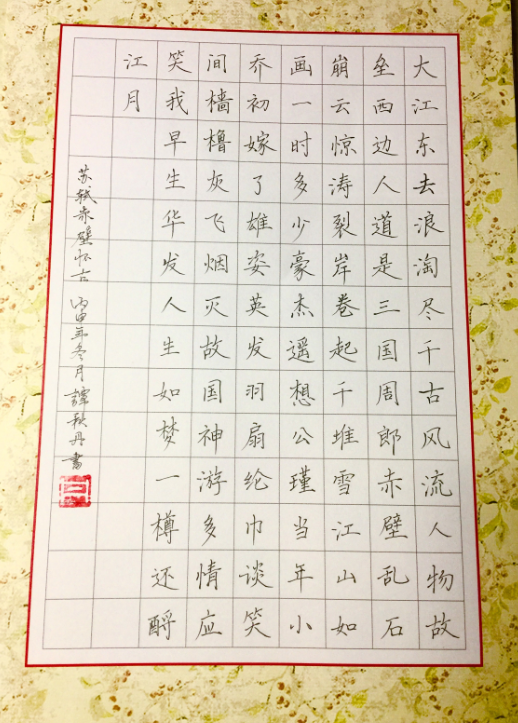 大江东去浪淘尽千古风流人物故
垒西边人道是三国周郎赤壁乱石
崩云惊涛裂岸卷起千堆雪江山如
画一时多少豪杰遥想公瑾当年小
乔初嫁了雄姿英发羽扇纶巾谈笑
间樯橹灰飞烟灭故国神游多情应
笑我早生华发人生如梦一樽还酹
江月
苏轼赤壁怀古 丙申年冬月譚秋丹書